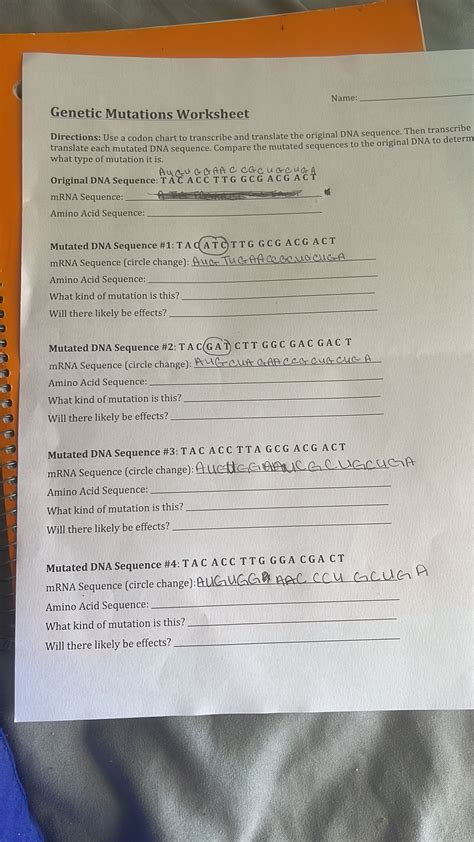 Name:
Genetic Mutations Worksheet
Directions: Use a codon chart to transcribe and translate the original DNA sequence. Then transcribe
translate each mutated DNA sequence. Compare the mutated sequences to the original DNA to determ
what type of mutation it is.
AUGUGGAACCGCUGCUGA
Original DNA Sequence: TAC ACC TTG GCG ACG ACT
mRNA Sequence:
Amino Acid Sequence:
Mutated DNA Sequence #1: TAC ATC TTG GCG ACG ACT
mRNA Sequence (circle change): AUG TUGAACCGCUGCUGA
Amino Acid Sequence:
What kind of mutation is this?
Will there likely be effects?
Mutated DNA Sequence #2: TAC GAT CTT GGC GAC GAC T
mRNA Sequence (circle change): AUGCUA GAACCG CUG CUG A
Amino Acid Sequence:
What kind of mutation is this?
Will there likely be effects?
Mutated DNA Sequence #3: TAC ACC TTA GCG ACG ACT
mRNA Sequence (circle change): AUGUGGAAUCGCUGCUGA
Amino Acid Sequence:
What kind of mutation is this?
Will there likely be effects?
Mutated DNA Sequence #4: TAC ACC TTG GGA CGA CT
mRNA Sequence (circle change): AUGUGG AAC CCU GCUGA
Amino Acid Sequence:
What kind of mutation is this?
Will there likely be effects?